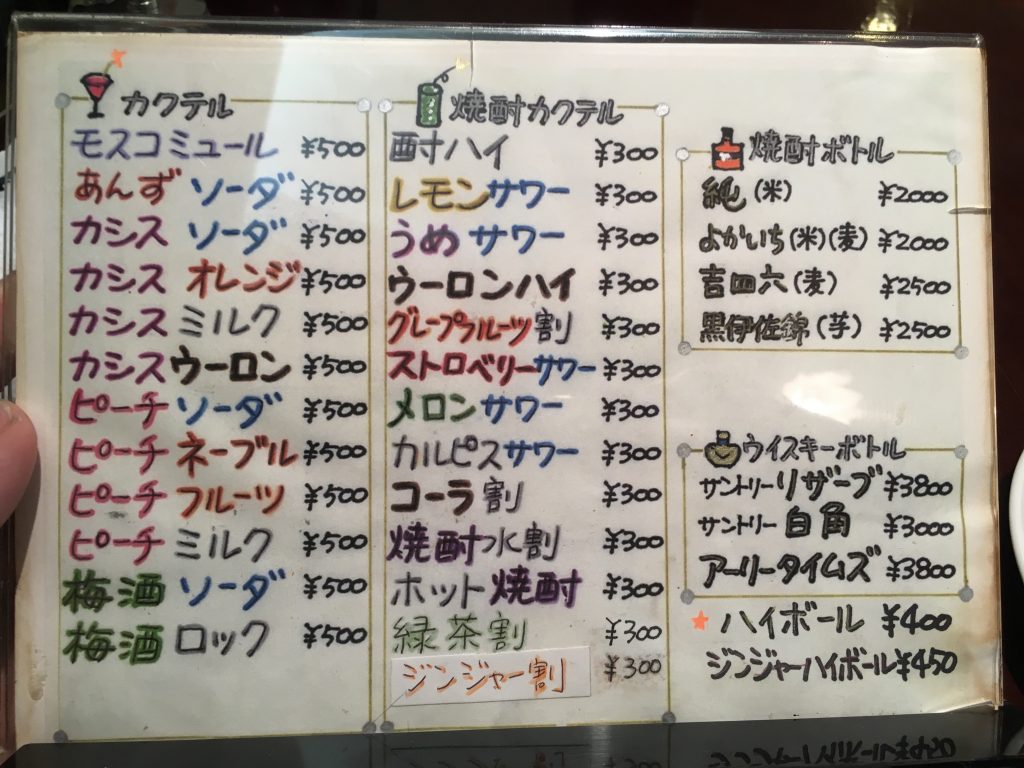 カクテル
モスコミュール ¥500
あんず ソーダ ¥500
カシス ソーダ ¥500
カシス オレンジ ¥500
カシス ミルク ¥500
カシス ウーロン ¥500
ピーチ ソーダ ¥500
ピーチ ネーブル ¥500
ピーチ フルーツ ¥500
ピーチ ミルク ¥500
梅酒 ソーダ ¥500
梅酒 ロック ¥500
焼酎カクテル
酎ハイ ¥300
レモンサワー ¥300
うめ サワー ¥300
ウーロンハイ ¥300
グレープフルーツ割 ¥300
ストロベリーサワー ¥300
メロンサワー ¥300
カルピスサワー ¥300
コーラ割 ¥300
焼酎水割 ¥300
ホット焼酎 ¥300
緑茶割 ¥300
ジンジャー割 ¥300
焼酎ボトル
純(米) ¥2000
よかいち(米)(麦) ¥2000
吉四六(麦) ¥2500
黒伊佐錦(芋) ¥2500
ウイスキーボトル
サントリーリザーブ ¥3800
サントリー白角 ¥3000
アーリータイムズ ¥3800
ハイボール ¥400
ジンジャーハイボール ¥450